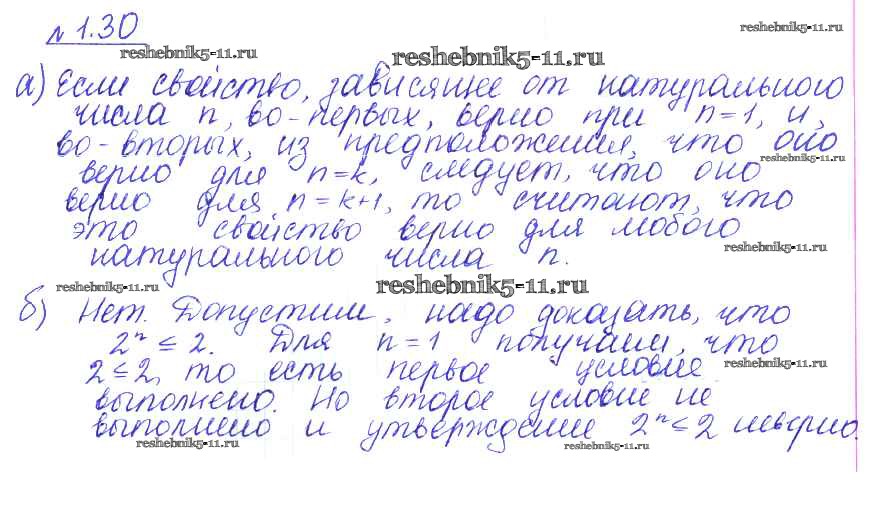 № 1.30
reshebnik5-11.ru
reshebnik5-11.ru
reshebnik5-11.ru
а) Если свойство, зависящее от натурального
числа n, во-первых, верно при n=1, и,
во-вторых, из предположения, что оно
reshebnik5-11.ru
верно для n=k, следует, что оно
верно для n=k+1, то считают, что
это свойство верно для любого
reshebnik5-11.ru
натурального числа n.
reshebnik5-11.ru
reshebnik5-11.ru
б) Нет. Допустим, надо доказать, что
2ⁿ ≤ 2. Для n=1 получаем, что
2≤2, то есть первое условие
reshebnik5-11.ru
выполнено. Но второе условие не
выполнено и утверждение 2ⁿ≤2 неверно.
reshebnik5-11.ru
reshebnik5-11.ru